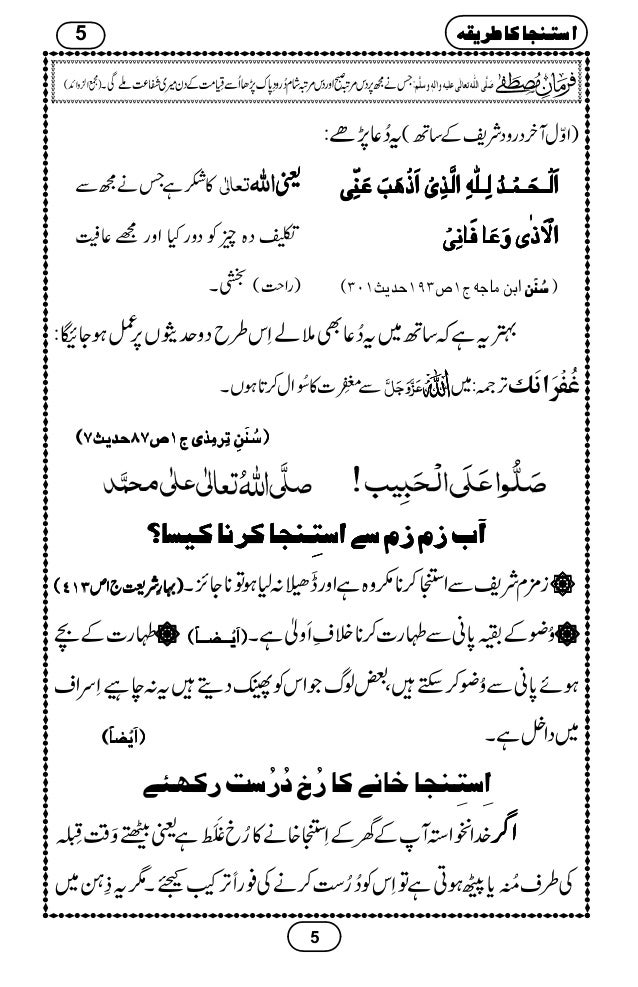 استنجا کا طریقہ
5
فرمانِ مصطفٰے صلَّی اللہ تعالٰی علیہ واٰلہٖ وسلَّم: جس نے مجھ پر دس مرتبہ صبح اور دس مرتبہ شام دُرود پاک پڑھا اُسے قیامت کے دن میری شفاعت ملے گی۔ (مجمع الزوائد)
(اوّل آخر درود شریف کے ساتھ) یہ دُعا پڑھے:
اَلْحَمْدُ لِلّٰہِ الَّذِیْ اَذْھَبَ عَنِّی یعنی اللہ تعالیٰ کا شکر ہے جس نے مجھ سے
الْاَذٰی وَعَافَانِیْ تکلیف دہ چیز کو دور کیا اور مجھے عافیت
(سُنَن ابن ماجہ ج۱ص۱۹۳حدیث۳۰۱) (راحت) بخشی۔
بہتر یہ ہے کہ ساتھ میں یہ دُعا بھی ملالے اِس طرح دو حدیثوں پر عمل ہو جائیگا:
غُفْرَانَکَ ترجمہ: میں اللہ عَزَّوَجَلَّ سے مغفِرت کا سُوال کرتا ہوں۔
(سُنَنِ تِرمِذی ج۱ص۸۷حدیث۷)
صَلُّوا عَلَی الْحَبِیب! صلَّی اللہُ تعالٰی علٰی محمَّد
آبِ زم زم سے استِنجا کرنا کیسا؟
زمزم شریف سے استنجا کرنا مکروہ ہے اور ڈَھیلا نہ لیا ہو تو ناجائز۔ (بہارِ شریعت ج۱ص۴۱۳)
وُضو کے بقیہ پانی سے طہارت کرنا خلافِ اَولٰی ہے۔ (اَیْضاً) طہارت کے بچے
ہوئے پانی سے وُضو کر سکتے ہیں، بعض لوگ جو اس کو پھینک دیتے ہیں یہ نہ چاہیے اِسراف
میں داخل ہے۔ (اَیْضاً)
اِستِنجا خانے کا رُخ دُرُست رکھئے
اگر خدانخواستہ آپ کے گھر کے اِستِنجا خانے کا رُخ غَلَط ہے یعنی بیٹھتے وَقت قِبلہ
کی طرف مُنہ یا پیٹھ ہوتی ہے تو اِس کو دُرُست کرنے کی فوراً ترکیب کیجئے۔ مگر یہ ذِہن میں
5